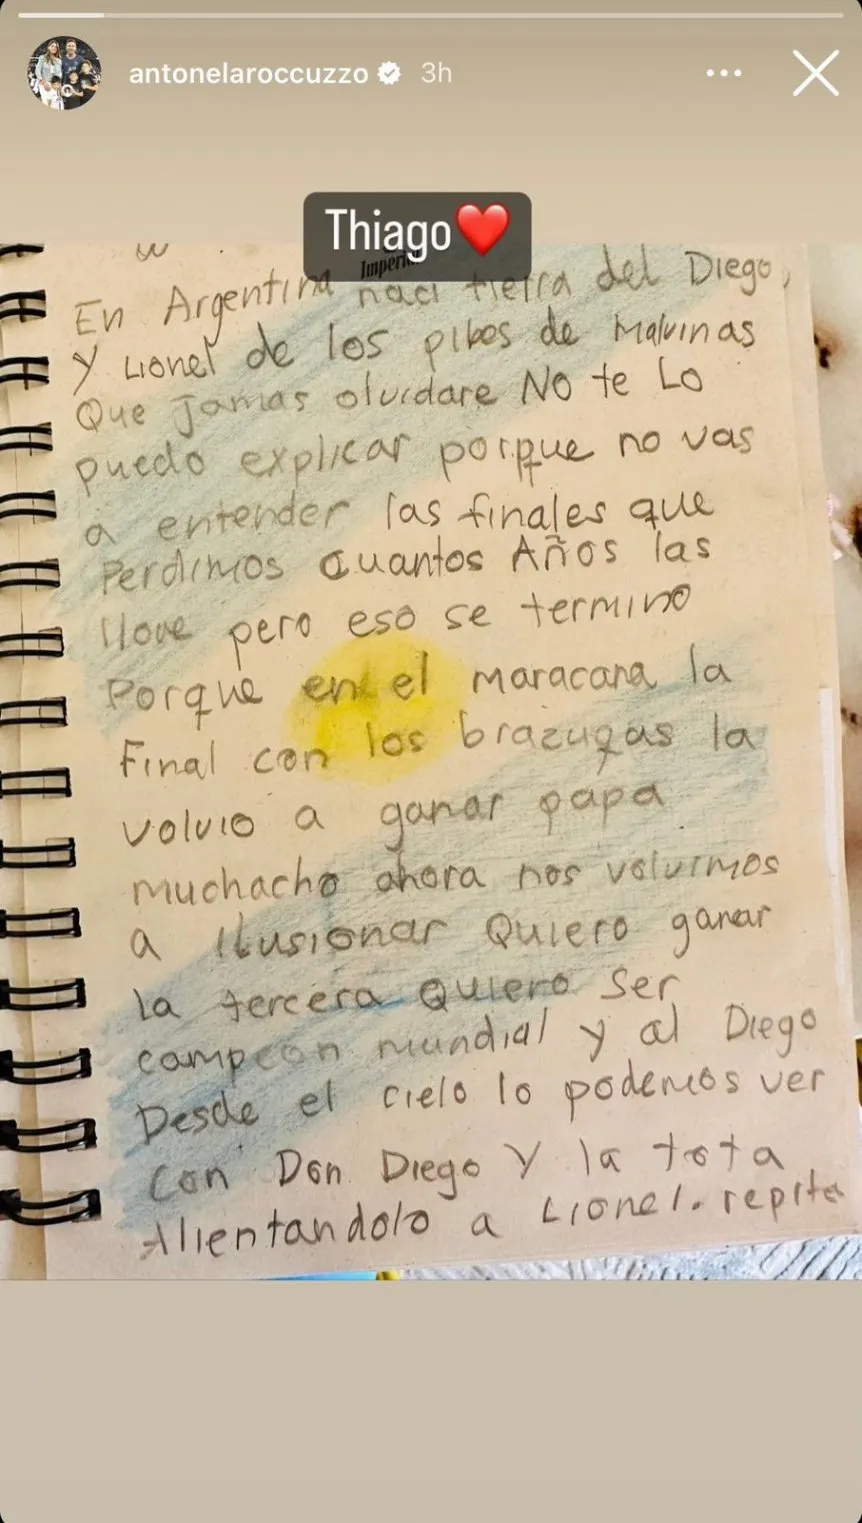 antonelaroccuzzo 3h
Thiago
En Argentina naci tierra del Diego,
y Lionel de los pibes de Malvinas
Que Jamas olvidare NO te Lo
puedo explicar porque no vas
a entender las finales que
Perdimos cuantos Años las
llore pero eso se termino
Porque en el maracana la
Final con los brazucas la
volvio a ganar papa
muchacho ahora nos volvimos
a Ilusionar Quiero ganar
la tercera Quiero Ser
campeon mundial y al Diego
Desde el cielo lo podemos ver
Con Don Diego Y la tota
Alientandolo a Lionel. repite